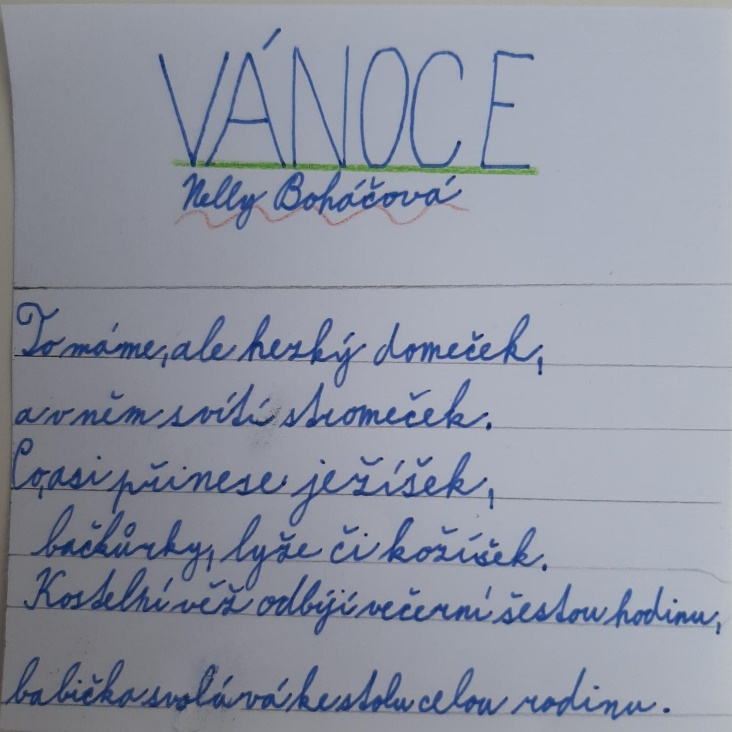 VÁNOCE
Nelly Boháčová
To máme, ale hezký domeček,
a v něm svítí stromeček.
Co, asi přinese ježíšek,
bačkůrky, lyže či kožíšek.
Kostelní věž odbíjí večerní šestou hodinu,
babička svolává ke stolu celou rodinu.